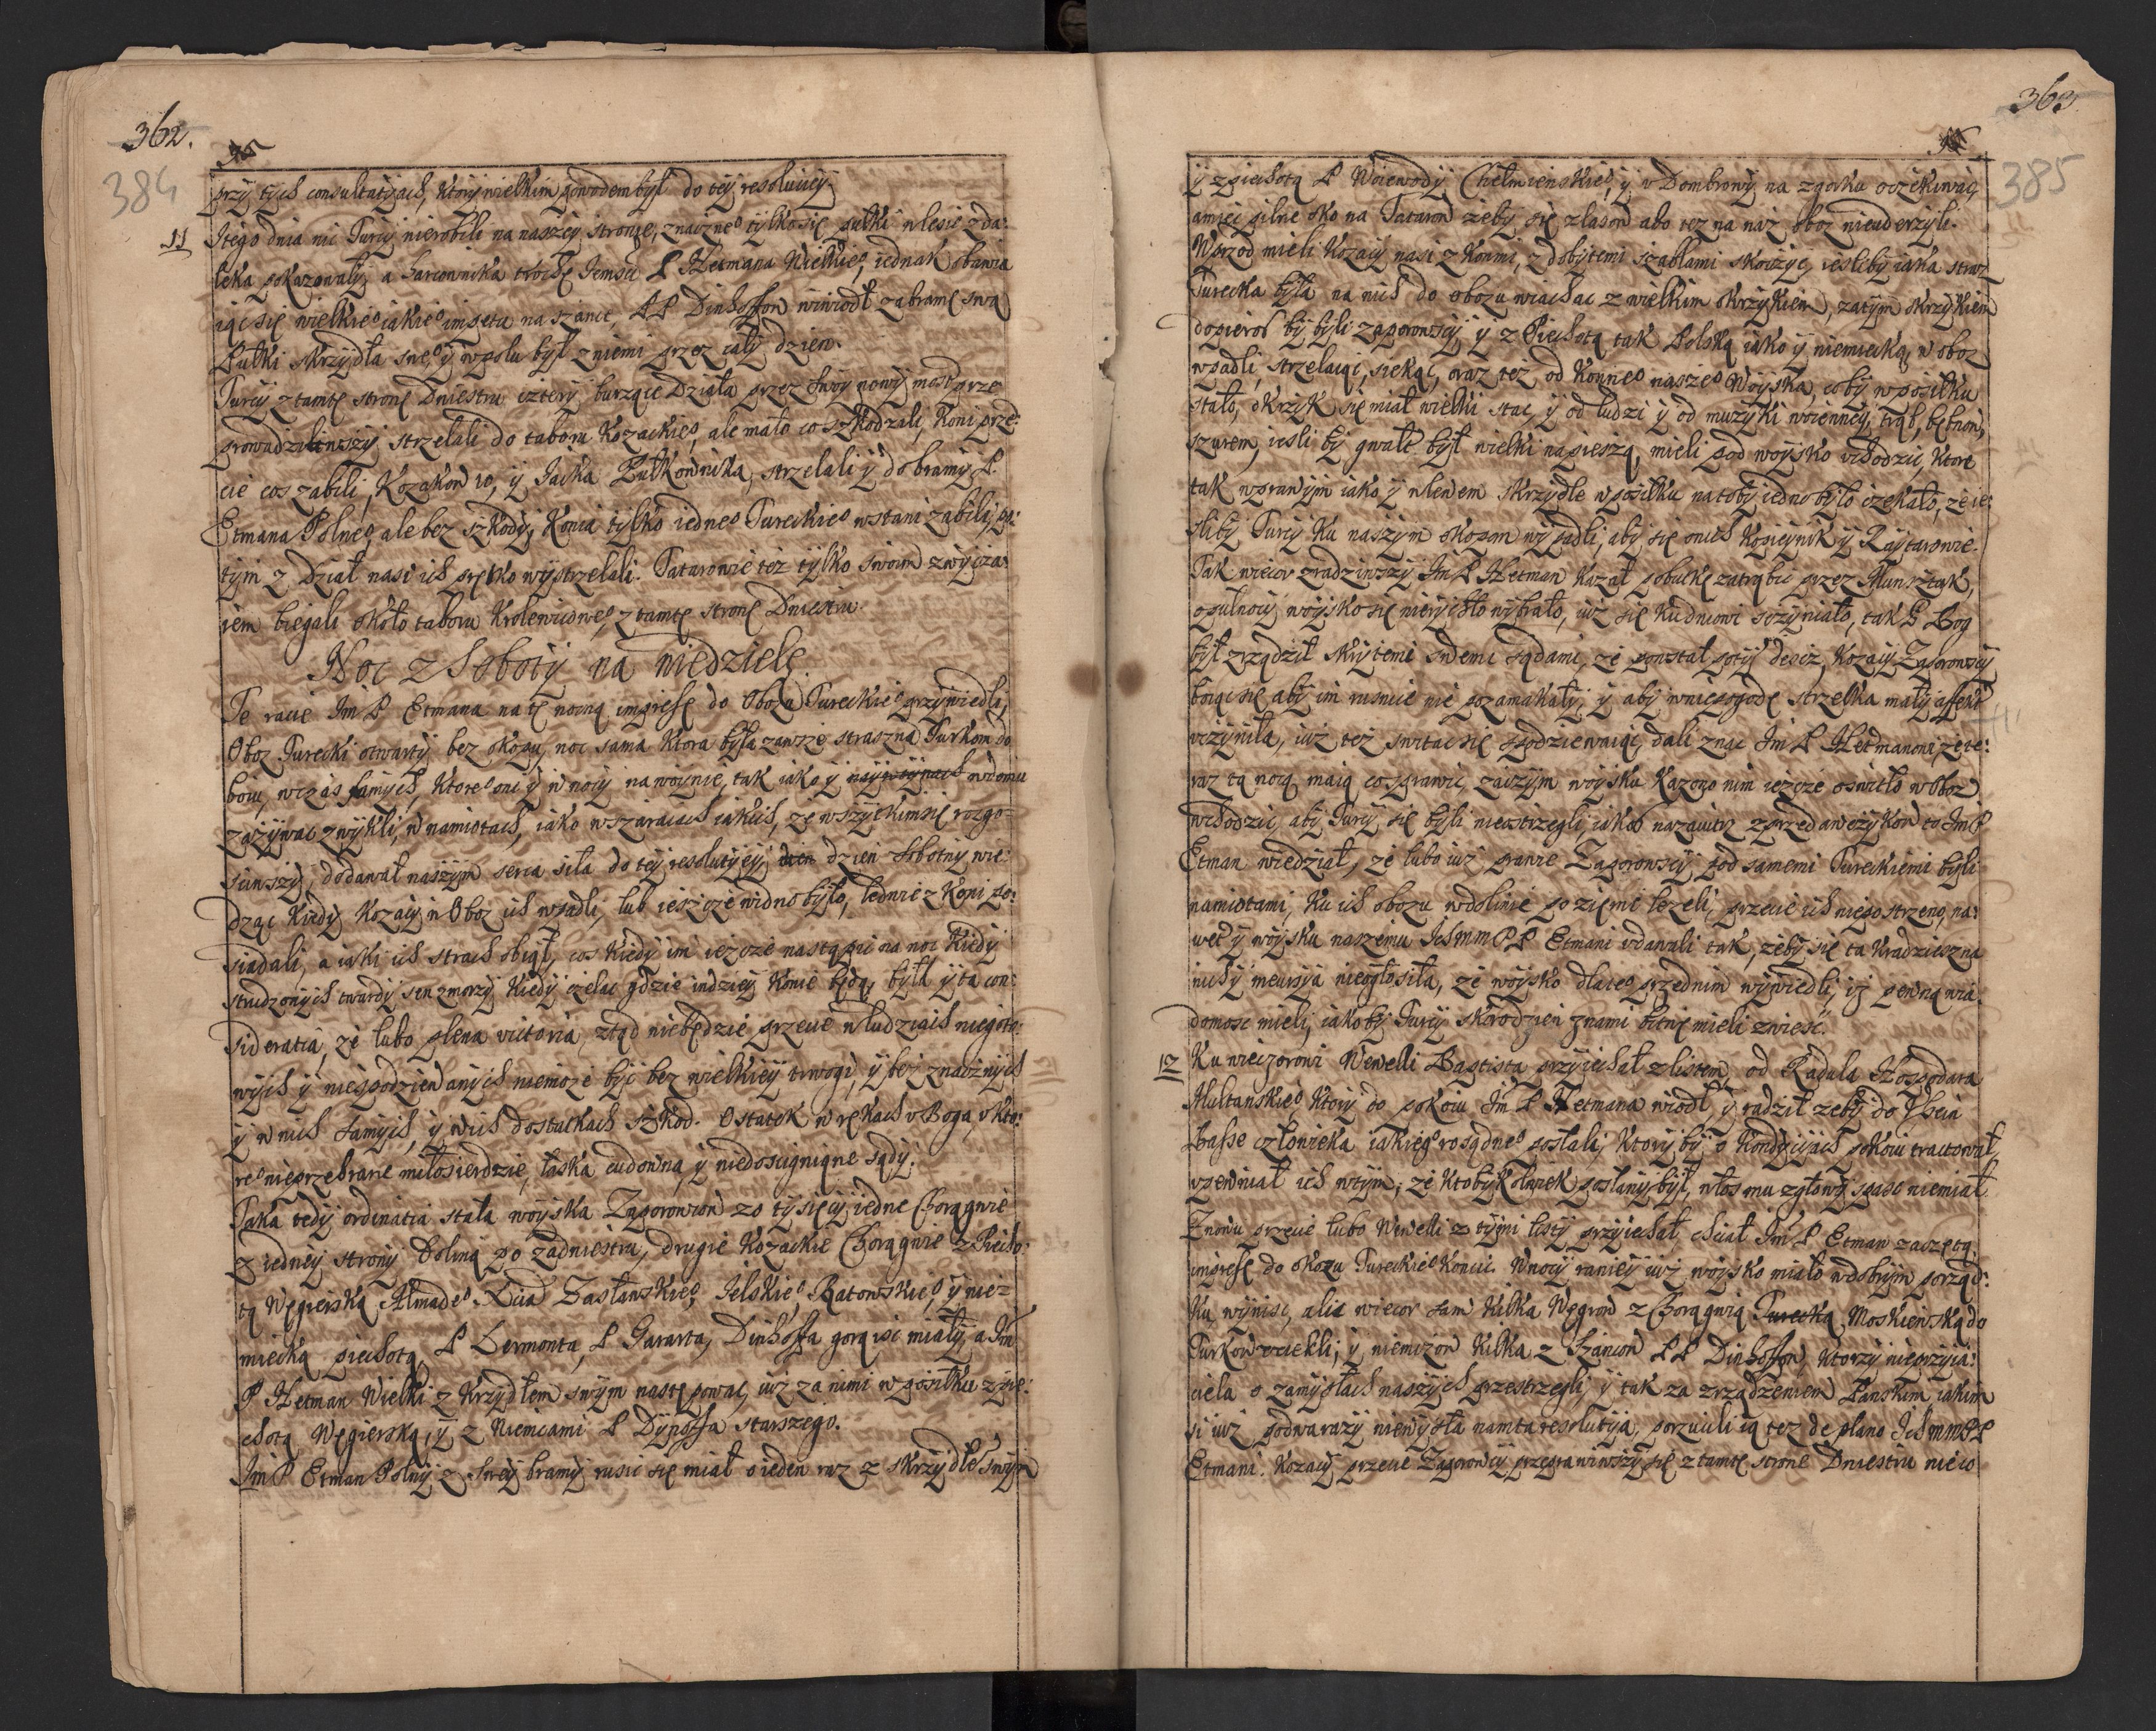 362.
384
przy tych consultatyach, ktory wielkim powodem był do tey resoluciey.
11 Itego dnia nic Turcy nierobili na naszey stronie, znaczne° tylko się pułki w lesie zda:
leka pokazowały, a harcownika trochę Iemsci P Hetmana Wielkie°, iednak obawia
iąc się wielkie° iakie° impetu na szance, PP Dinhoffow wiwiodł za bramę swą
Pułki skrzydła swe°, y wpolu był z niemi przez cały dzien.
Turcy z tamtę stronę Dniestru cztery burzące Działa przez swoy nowy most prze
prowadziliwszy strzelali do taboru Kozackie°, ale mało co szkodzali, Koni prze:
cie cos zabili, Kozakow 10, y Iacka Pułkownika, strzelali y do bramy P.
Etmana Polne°, ale bez szkody, Konia tylko iedne° Tureckie° wstani zabili, po:
tym z Dział nasi ich prętko wystrzelali. Tatarowie tez tylko swoim zwycza:
iem biegali około taboru Krolewicowe°, z tamtę stronę Dniestru.
Noc z Soboty na niedzielę
Te racie Im P Etmana na tę nocną impresę do Obozu Tureckie° przywiedli,
Oboz Turecki otwarty bez okopu, noc sama ktora była zawsze straszna Turkom do
boiu, wczas samych, ktore° oni y w nocy na woynie, tak iako y w domu
zazywac zwykli, w namiotach, iako w szaraiach iakich, ze wszytkim się rozgo:
sciwszy, dodawał naszym serca siła do tey resolutyey, dzien Sobotny wie:
dząc kiedy Kozacy w Oboz ich wpadli, lub ieszcze widno było, ledwie z Kopi po:
siadali, a iaki ich strach obiął, cos kiedy im ieszcze nastąpic na noc kiedy
strudzonych twardy sen zmorzy, kiedy czeladz gdzie indziey Konie będą, był y ta con:
sideratia, ze lubo plena victoria, ztąd niebędzie przecie w ludziach niegoto:
wych y niespodziewanych niemoze byc bez wielkiey trwogi, y bez znacznych
y w nich samych, y w ich dostatkach szkod. Ostatek w rękach v Boga, v kto:
re° nieprzebrane miłosierdzie, łaska cudowna, y niedoscignione sądy.
Taka tedy ordinatia stała woyska Zaporowcow 20 tysięcy, iedne Chorągwie
z iedney strony doliną po zadniestru, drugie Kozackie Chorągwie z Piecho:
tą Węgierską Almade° Xcia Zasławskie°, Ielskie°, Ratowskie°, y nie:
miecką piechotą, P Lermonta, P Gararta, Dinhoffa gorą isc miały, a Im
P Hetman Wielki z Krzydłem swym nastepowac, iuz za nimi w posiłku z pie:
chotą Węgierską, y z Niemcami P Dynoffa starszego.
Im P Etman Polny z swey bramy rusic się miał o ieden raz z skrzydłe swym
363
385
y z piechotą P Woiewody Chełmienskie°, y v Dombrowy na zgorku oczekiwac,
amiec pilne oko na Tatarow zeby się z lasow abo tez na nasz oboz nieuderzyli.
Wprzod mieli Kozacy nasi z Konmi, z dobytemi szablami skoczyc, iesliby iaka straz
Turecka była na nich do obozu wiachac z wielkim okrzykiem, zatym okrzykiem
dopieroz by byli zaporowscy, y z Piechotą tak Polską iako y niemiecką, w oboz
wpadli, strzelaiąc, siekąc, oraz tez od Konne° nasze° Woyska, coby w posiłku
stało, okrzyk się miał wielki stac, y od ludzi y od muzyki woienney, trąb, bębnow,
szurem, iesli by gwałt był wielki na pieszą, mieli pod woysko vchodzic, ktore
tak w prawym iako y w lewem skrzydle w posiłku na toby iedno było czekało, ze ie:
sliby Turcy ku naszym okopom wypadli, aby się onich Kopieynik y Raytarowie.
Tak wieczor zradziwszy Im P Hetman kazał pobutkę zatrąbic przez Munsztuk,
opułnocy woysko się nierychło wybrało, iuz się ku dniowi sczyniało, tak P Bog
był zrządził skrytemi swemi sądami, ze powstał potym descz, Kozacy Zaporowscy
boiąc się aby im rusnice nie pozamakały, y aby w niepogodę strzelka mały affekt
vczyniła, iuz tez switac się spodziewaiąc, dali znac Im P Hetmanowi, ze te:
raz tą nocą maią co sprawic, zaczym woysku kazono nim ieszcze oswitło w Oboz
wchodzic, aby Turcy się byli nieostrzegli, iakoz nazaiutrz z przedawczykow to Im P
Etman wiedział, ze lubo iuz prawie Zaporowscy pod samemi Tureckiemi byli
namiotami, ku ich obozu w dolinie po ziemi lezeli, przecie ich niepostrzezono, na:
wet y woysku naszemu Ich MM PP Etmani vdawali tak, zeby się ta kradzieszna
nichy incursya nieogłosiła, ze woysko dlacie° przednim wywiedli, iz pewną wia:
domosc mieli, iakoby Turcy skorodzien z nami bitwę mieli zwiesc.
12 Ku wieczorowi Wewelli Baptista przyiechał z listem od Radula Hospodara
Multanskie°, ktory do pokoiu Im P Hetmana wiodł, y radził zeby do Vsein
Basse człowieka iakiego rosądne° posłali, ktory by o Kondyciach pokoiu tractował,
vpewniał ich w tym, ze ktobykolwiek posłany był, włos mu z głowy spasc niemiał.
Znowu przecie lubo Wewelli z tymi listy przyiechał, chciał Im P Etman zaczętą
impresę do okopu Tureckie° koncic. W nocy raniey iuz woysko miało w dobrym porząd:
ku wynisc, alic wieczor sam kilka Węgrow z Chorągwią Moskiewską do
Turkow vciekli, y niemcow kilka z Szancow PP Dinhoffow, ktorzy nieprzyia:
ciela o zamysłach naszych przestrzegli, y tak za zrządzeniem Panskim iakim
si iuz podwa razy niewyszła nam ta resolutya, porzucili ią tez de plano Ich MM PP
Etmani. Kozacy przecie Zaporowscy przeprawiwszy się z tamtę stronę Dniestru nieco